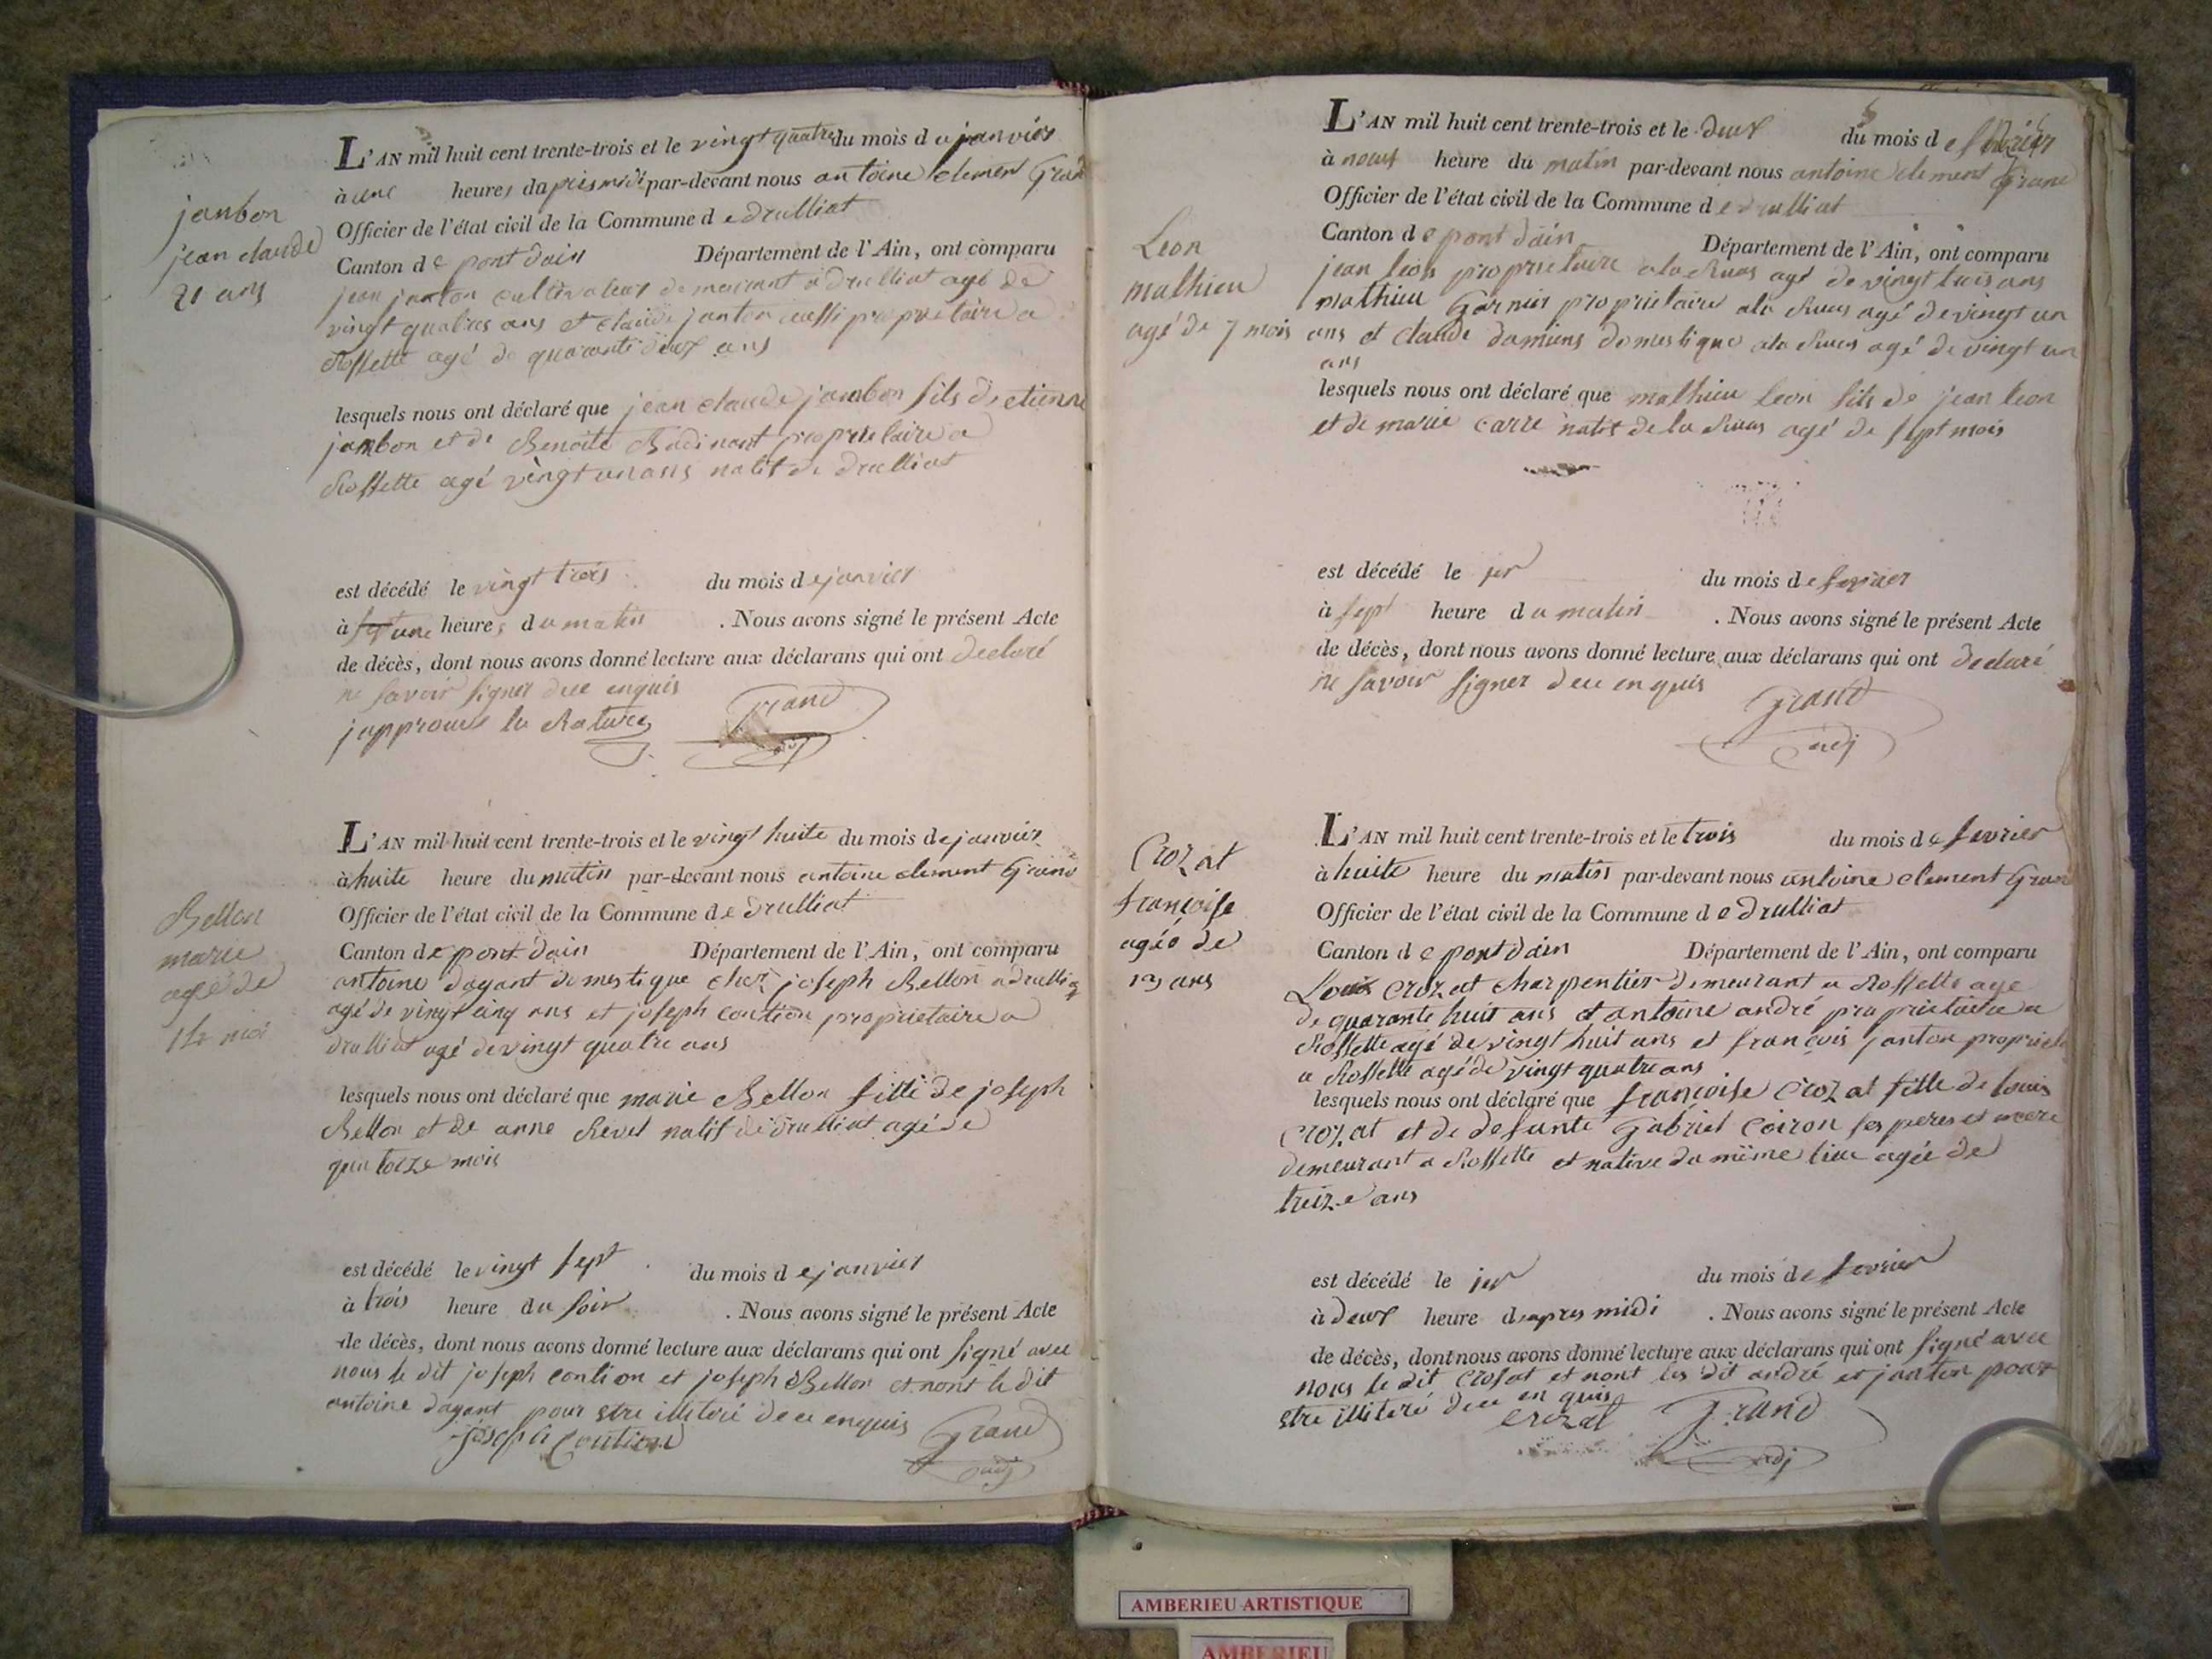 jambon
jean claude
21 ans
L'AN mil huit cent trente-trois et le vingt quatre du mois de janvier
à une heures dapresmidi par-devant nous antoine clement Grand
Officier de l'état civil de la Commune de drulliat
Canton de pont dain Département de l'Ain, ont comparu
jean janton cultivateur demeurant a drulliat agé de
vingt quatres ans et claude janton aussi propriétaire a
Rossette agé de quarante deux ans
lesquels nous ont déclaré que jean claude jambon fils de etienne
jambon et de Benoite propriétaire a
Rossette agé vingt un ans natif de drulliat
est décédé le vingt trois du mois de janvier
à sept une heures du matin . Nous avons signé le présent Acte
de décès, dont nous avons donné lecture aux déclarans qui ont declaré
ne savoir signer de ce enquis
japprouve la Rature Grand
adj
Bellon
marie
agé de
14 moi
L'AN mil huit cent trente-trois et le vingt huite du mois de janvier
à huite heure du matin par-devant nous antoine clement Grand
Officier de l'état civil de la Commune de drulliat
Canton de pont dain Département de l'Ain, ont comparu
antoine dagant domestique chez joseph Bellon a drulliat
agé de vingt cinq ans et joseph contion propriétaire a
drulliat agé de vingt quatre ans
lesquels nous ont déclaré que marie Bellon fille de joseph
Bellon et de anne Revel natif de drulliat agé de
quatorze mois
est décédé le vingt sept du mois de janvier
à trois heure du soir . Nous avons signé le présent Acte
de décès, dont nous avons donné lecture aux déclarans qui ont signé avec
nous le dit joseph contion et joseph Bellon et nont le dit
antoine dagant pour etre illiteré de ce enquis Grand
joseph Contion adj
Leon
mathieu
agé de 7 mois
L'AN mil huit cent trente-trois et le deux du mois de fevrier
à neuf heure du matin par-devant nous antoine clement Grand
Officier de l'état civil de la Commune de drulliat
Canton de pont dain Département de l'Ain, ont comparu
jean leon proprietaire ala Ruas agé de vingt trois ans
mathieu Garnier proprietaire ala Ruas agé de vingt un
ans et claude damians domestique ala Ruas agé de vingt un
ans
lesquels nous ont déclaré que mathieu leon fils de jean leon
et de marie carre natif de la Ruas agé de sept mois
est décédé le jer du mois de fevrier
à sept heure du matin . Nous avons signé le présent Acte
de décès, dont nous avons donné lecture aux déclarans qui ont declaré
ne savoir signer de ce enquis
Grand
adj
Crozat
françoise
agée de
13 ans
L'AN mil huit cent trente-trois et le trois du mois de fevrier
à huite heure du matin par-devant nous antoine clement Grand
Officier de l'état civil de la Commune de drulliat
Canton de pont dain Département de l'Ain, ont comparu
Louis Crozat charpentier demeurant a Rossette age
de quarante huit ans et antoine andré propriétaire a
Rossette agé de vingt huit ans et françois janton propriet
a Rossette agé de vingt quatre ans
lesquels nous ont déclaré que françoise Crozat fille de louis
Crozat et de defunte Gabriel Coiron ses peres et mere
demeurant a Rossette et native du même lieu agée de
treize ans
est décédé le jer du mois de fevrier
à deux heure dapres midi . Nous avons signé le présent Acte
de décès, dont nous avons donné lecture aux déclarans qui ont signé avec
nous le dit Crosat et nont les dit andré et janton pour
etre illiteré de ce en quis
crozat Grand
adj
AMBERIEU ARTISTIQUE
AMBERIEU